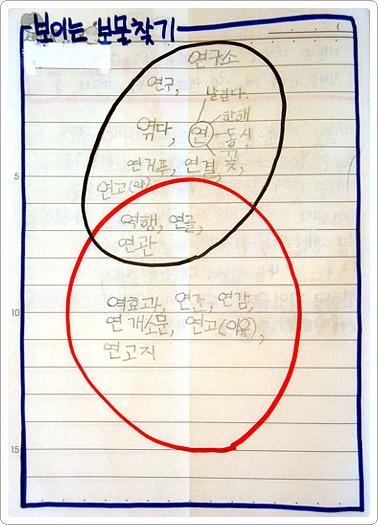 보이는 보물찾기
연구소
연구,
날린다.
한해
엮다, 연 동시,
꽃,
연거푸, 연결,
연고(약)
역행, 연골,
연관
역효과, 연간, 연감,
연개소문, 연고(이유),
연고지
5
10
15